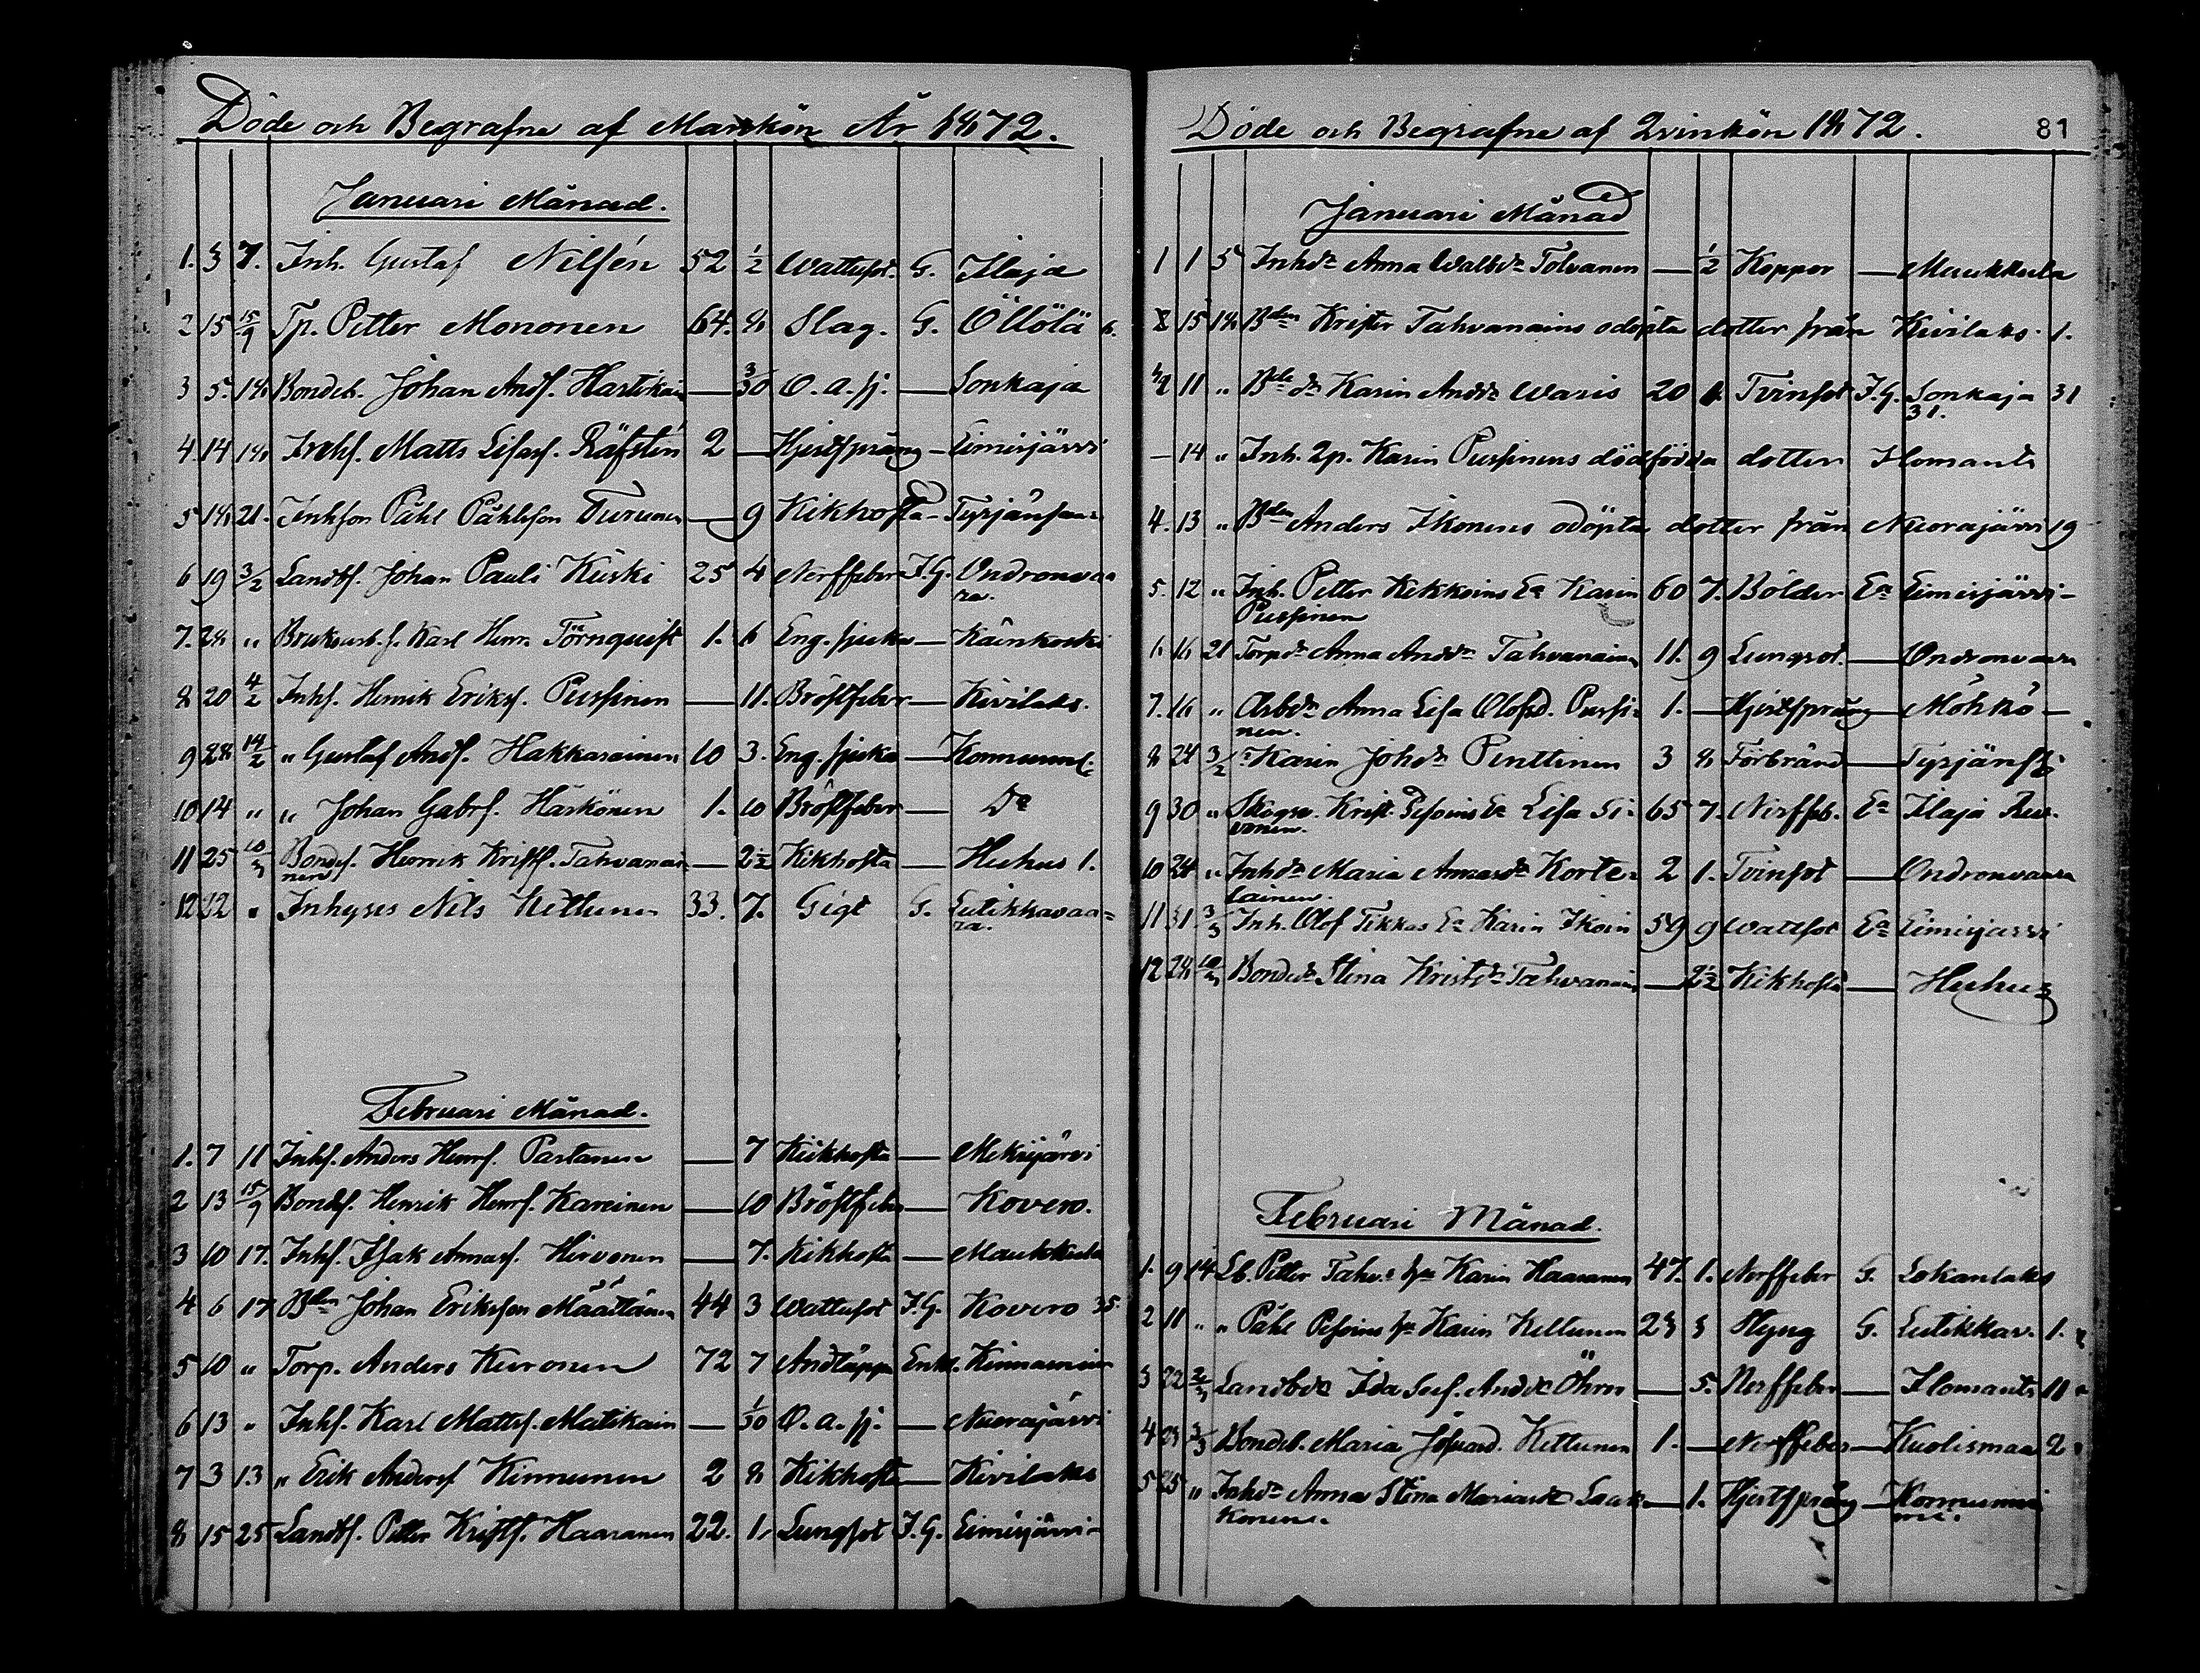 Döde och Begrafne af Mankön År 1872.
Januari Månad.
1. 3 7. Inh. Gustaf Nilsén 52 1/2 Wattusot. G. Ilaja
2 15 15/9 Tp. Petter Mononen 64. 8 Slag. G. Öllölä 6.
3 5. 18 Bondes. Johan Andf. Hartikain — 3/30 O. a. sj. — Sonkaja
4. 14 18 Matts Lisasf. Räfstén 2 — Hjertsprång — Eimisjärvi
5 18 21. Inhson Påhl Påhlsson Turunen — 9 Kikhosta — Tyrjänsaari
6 19 3/2 Landbf. Johan Pauli Kuiski 25 4 Nerffeber I.G. Ondronvaa
ra.
7. 28 " Karl Henr. Törnquist 1. 6 Eng. sjuka — Käenkoski
8 20 4/2 Inhf. Henrik Eriksf. Pussinen — 11. Bröstfeber — Kivilaks.
9 28 14/2 " Gustaf Andf. Hakkarainen 10 3. Eng. sjuka — Konnunni
10 14 " " Johan Gabrf. Härkönen 1. 10 Bröstfeber — Do
11 25 10/3 Bondef. Henrik Kristf. Tahvanai — 2 1/2 Kikhosta — Huhus 1.
nen
12 22 " Inhyses Nils Kettunen 33. 7. Gigt G. Lutikkavaa=
ra.
Februari Månad.
1. 7 11 Inhf. Anders Henrf. Partanen — 7 Kikhosta — Mekrijärvi
2 13 15/9 Bondf. Henrik Henrf. Kareinen — 10 Bröstfeber — Kovero.
3 10 17. Inhf. Isak Annasf. Hirvonen — 7. Kikhosta — Maukkula
4 6 17 Bden Johan Eriksson Määttänen 44 3 Wattusot I.G. Kovero 35.
5 10 " Torp. Anders Kuronen 72 7 Andtäppa Enkl. Kinnasniemi
6 13 " Inhf. Karl Mattsf. Matikain — 1/30 O. a. sj. — Nuorajärvi
7 3 13 " Erik Andersf Kinnunen 2 8 Kikhosta — Kivilaks
8 15 25 Landbf. Petter Kristf. Haaranen 22. 1. Lungsot I.G. Eimisjärvi
Döde och Begrafne af Qvinkön 1872. 81
Januari Månad
1 1 5 Inhdr Anna Walbdr Tolvanen — 1/2 Koppor — Maukkula
15 18 Bden Krister Tahvanains odöpta dotter från Kivilaks 1.
11 " Karin Anddr Waris 20 Tvinsot I.G. Sonkaja 31
31.
— 14 " Inh. Qp. Karin Pussinens dödfödda dotter Ilomants
4. 13 " Bden Anders Ikonens odöpta dotter från Nuorajärvi 19
5. 12 " Inh. Petter Kekkoins Ea Karin 60 7. Bölder Ea Eimisjärvi
Pussinen
6. 16 21 Torpdr Anna Anddr Tahvanain 11. 9 Lungsot. — Ondronvaara
7. 16 " Arbdr Anna Lisa Olofsd. Pussi- 1. — Hjertsprång — Möhkö
nen.
8 24 3/2 Karin Johdr Penttinen 3 8 Förbränd — Tyrjänss
9 30 " Skogsv. Krist. Pesoins Ea Lisa Si- 65 7. Nerffeb. Ea Ilaja
vonen.
10 24 " Inhdr Maria Annasdr Korte- 2 1. Tvinsot — Ondronvaara
lainen.
11 31 3/3 Inh. Olof Tikkas Ea Karin Ikoin 59 9 Wattsot Ea Eimisjärvi
12 28 10/3 Bondedr Stina Kristdr Tahvanain — 2 1/2 Kikhosta — Huhus
Februari Månad.
1. 9 14 Lb. Petter Tahvs hu Karin Haaranen 47. 1. Nerffeber G. Lokanlaks
2 11 " " Påhl Pesoins hu Karin Kettunen 23 3 Styng G. Lutikkav. 1.
3 22 2/3 Landbdr Ida Sof. Anddr Öhrn — 5. Nerffeber — Ilomants 11
4 23 3/3 Bonded. Maria Kettunen 1. — Nerffeber — Kuolismaa 2
5 25 " Inhdr Anna Stina Mariasdr Laak- — 1. Hjertsprång — Konnunni
konen.